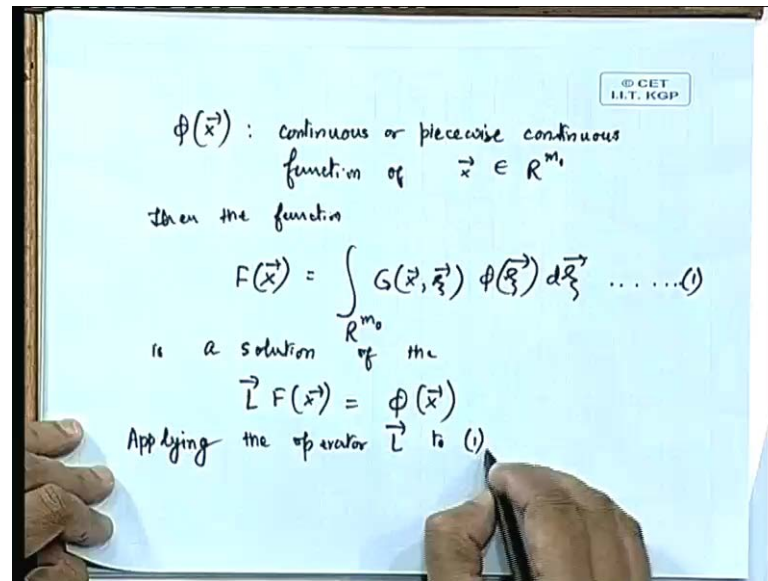 © CET
I.I.T. KGP
ϕ(x⃗) : continuous or piecewise continuous
function of x⃗ ∈ R^{m₀}
Then the function
F(x⃗) = ∫_{R^{m₀}} G(x⃗, ξ⃗) ϕ(ξ⃗) dξ⃗ ......(1)
is a solution of the
L⃗ F(x⃗) = ϕ(x⃗)
Applying the operator L⃗ to (1)